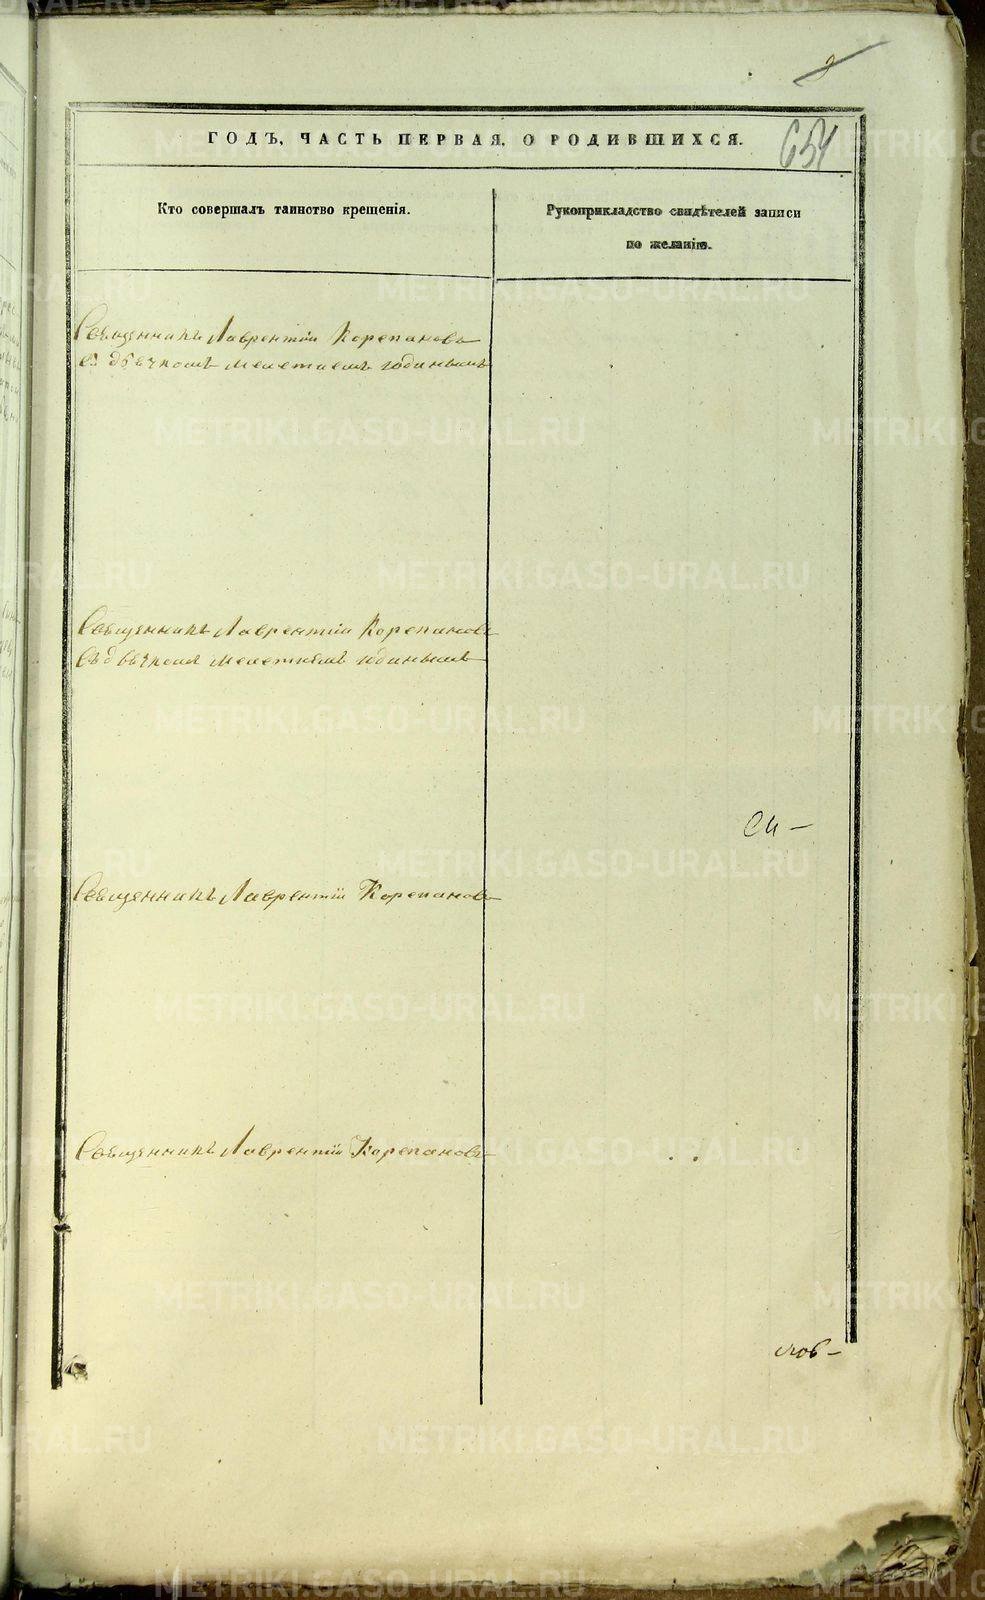 2
654
ГОДЪ, ЧАСТЬ ПЕРВАЯ, О РОДИВШИХСЯ.
Кто совершалъ таинство крещенія.
Рукоприкладство свидѣтелей записи
по желанію.
Священникъ Лаврентій Корепановъ
съ дьячкомъ Мелетіемъ Юдинымъ
Священникъ Лаврентій Корепановъ
съ дьячкомъ Мелетіемъ Юдинымъ
Священникъ Лаврентій Корепановъ
Священникъ Лаврентій Корепановъ
METRIKI.GASO-URAL.RU